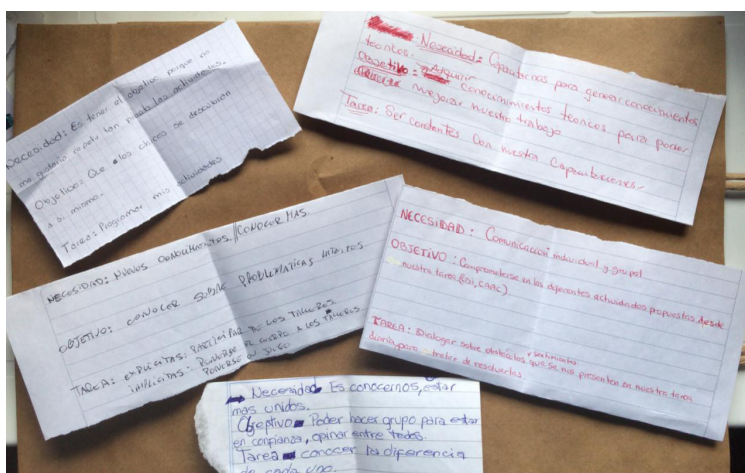 Necesidad: Es tener el objetivo porque no
me gustaría repetir tan pronto las actividades.
Objetivo: Que los chicos se descubran
a si mismo.
Tarea: Programar mis actividades
Necesidad: Capacitarnos para generar conocimientos
teoricos.
Objetivo: Adquirir conocimientos teoricos para poder
mejorar nuestro trabajo
Tarea: Ser constantes con nuestra capacitaciones.
NECESIDAD: NUEVOS CONOCIMIENTOS // CONOCER MAS
OBJETIVO: CONOCER SOBRE PROBLEMATICAS
TAREA: EXPLICITAS: PARTICIPAR DE LOS TALLERES
IMPLICITAS: PONERSE EL CUERPO A LOS TALLERES
PONERSE EN JUEGO
NECESIDAD: Comunicación individual y grupal
OBJETIVO: Comprometerse en las diferentes actividades propuestas desde
nuestra tarea (CAAC)
TAREA: Dialogar sobre obstáculos y sentimientos que se nos presenten en nuestra tarea
diaria, para tratar de resolverlos.
Necesidad Es conocernos, estar
mas unidos.
Objeptivo Poder hacer grupo para estar
en confianza, opinar entre todos.
Tarea conocer la diferencia
de cada uno.